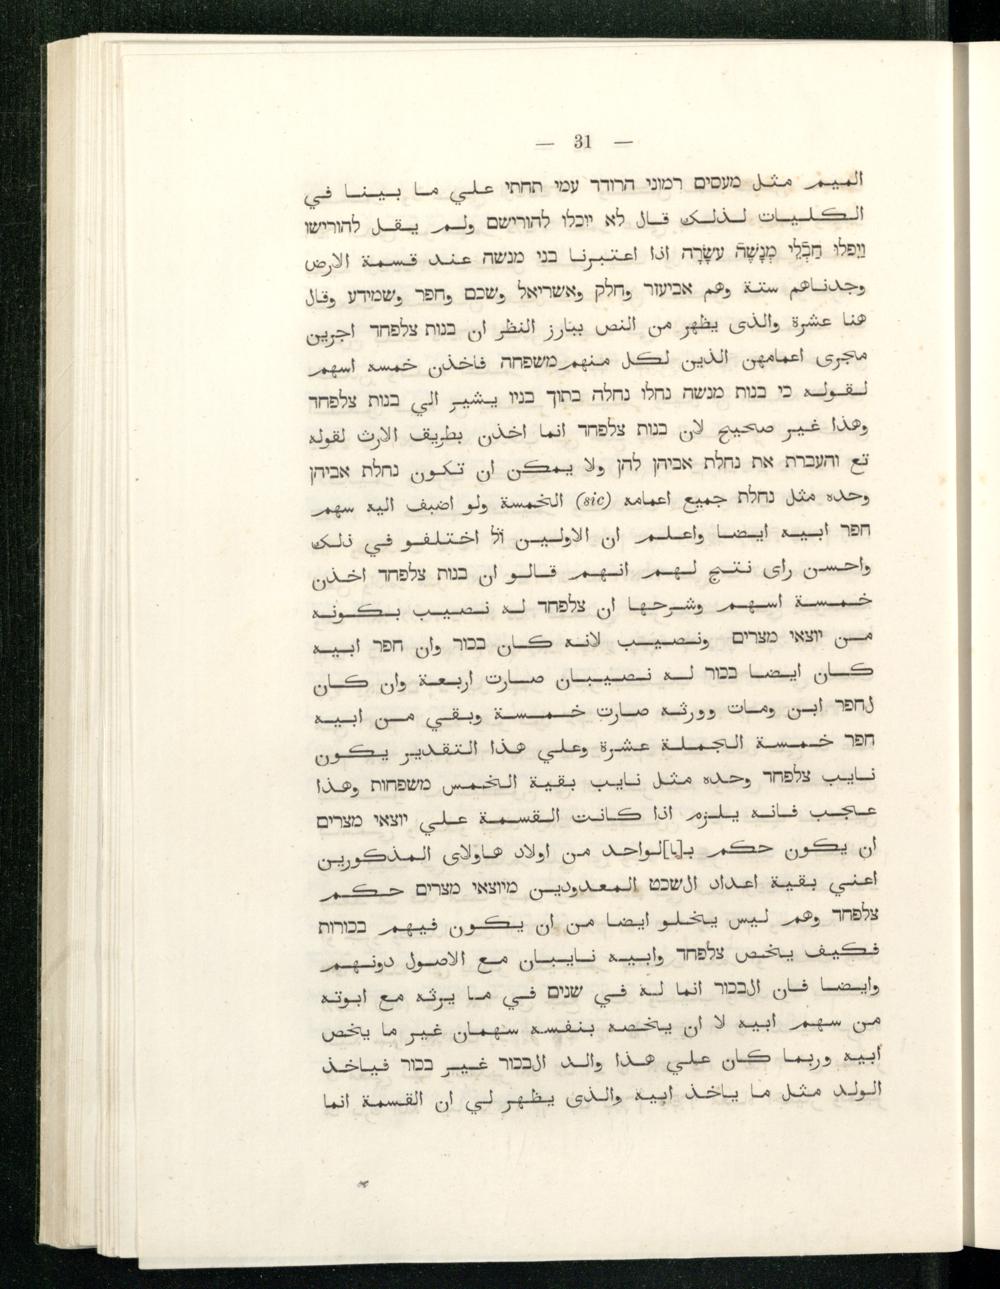 — 31 —
الميم مثل מעסים רמוני הרודד עמי תחתי علي ما بينا في
الكليات لذلك قال לא יוכלו להורישם ولم يقل להורישו
וַיִּפְּלוּ חַבְלֵי מְנַשֶּׁה עשָׂרָה اذا اعتبرنا בני מנשה عند قسمة الارض
وجدناهم ستة وهم אביעזר וחלק ואשריאל ושכם וחפר ושמידע وقال
هنا عشرة والذى يظهر من النص ببارز النظر ان בנות צלפחד اجرين
مجرى اعمامهن الذين لكل منهم משפחה فاخذن خمسه اسهم
لقوله כי בנות מנשה נחלו נחלה בתוך בניו يشير الي בנות צלפחד
وهذا غير صحيح لان בנות צלפחד انما اخذن بطريف الارث لقوله
تع והעברת את נחלת אביהן להן ولا يمكن ان تكون נחלת אביהן
وحده مثل נחלת جميع اعمامه (sic) الخمسة ولو اضبف اليه سهم
חפר ابيه ايضا واعلم ان الاولين ז̇ל اختلفو في ذلك
واحسن راى نتج لهم انهم قالو ان בנות צלפחד اخذن
خمسة اسهم وشرحها ان צלפחד له نصيب بكونه
من יוצאי מצרים ونصيب لانه كان בכור وان חפר ابيه
كان ايضا בכור له نصيبان صارت اربعة وان كان
لחפר ابن ومات وورثه صارت خمسة وبقي من ابيه
חפר خمسة الجملة عشرة وعلي هذا التقدير يكون
نايب צלפחד وحده مثل نايب بقية الخمس משפחות وهذا
عجب فانه يلزم اذا كانت القسمة علي יוצאי מצרים
ان يكون حكم ب[ا]لواحد من اولاد هاولاى المذكورين
اعني بقية اعداد الשבט المعدودين מיוצאי מצרים حكم
צלפחד وهم ليس يخلو ايضا من ان يكون فيهم בכורות
فكيف يخص צלפחד وابيه نايبان مع الاصول دونهم
وايضا فان الבכור انما له פי שנים في ما يرثه مع ابوته
من سهم ابيه لا ان يخصه بنفسه سهمان غير ما يخص
ابيه وربما كان علي هذا والد الבכור غير בכור فياخذ
الولد مثل ما ياخذ ابيه والذى يظهر لي ان القسمة انما